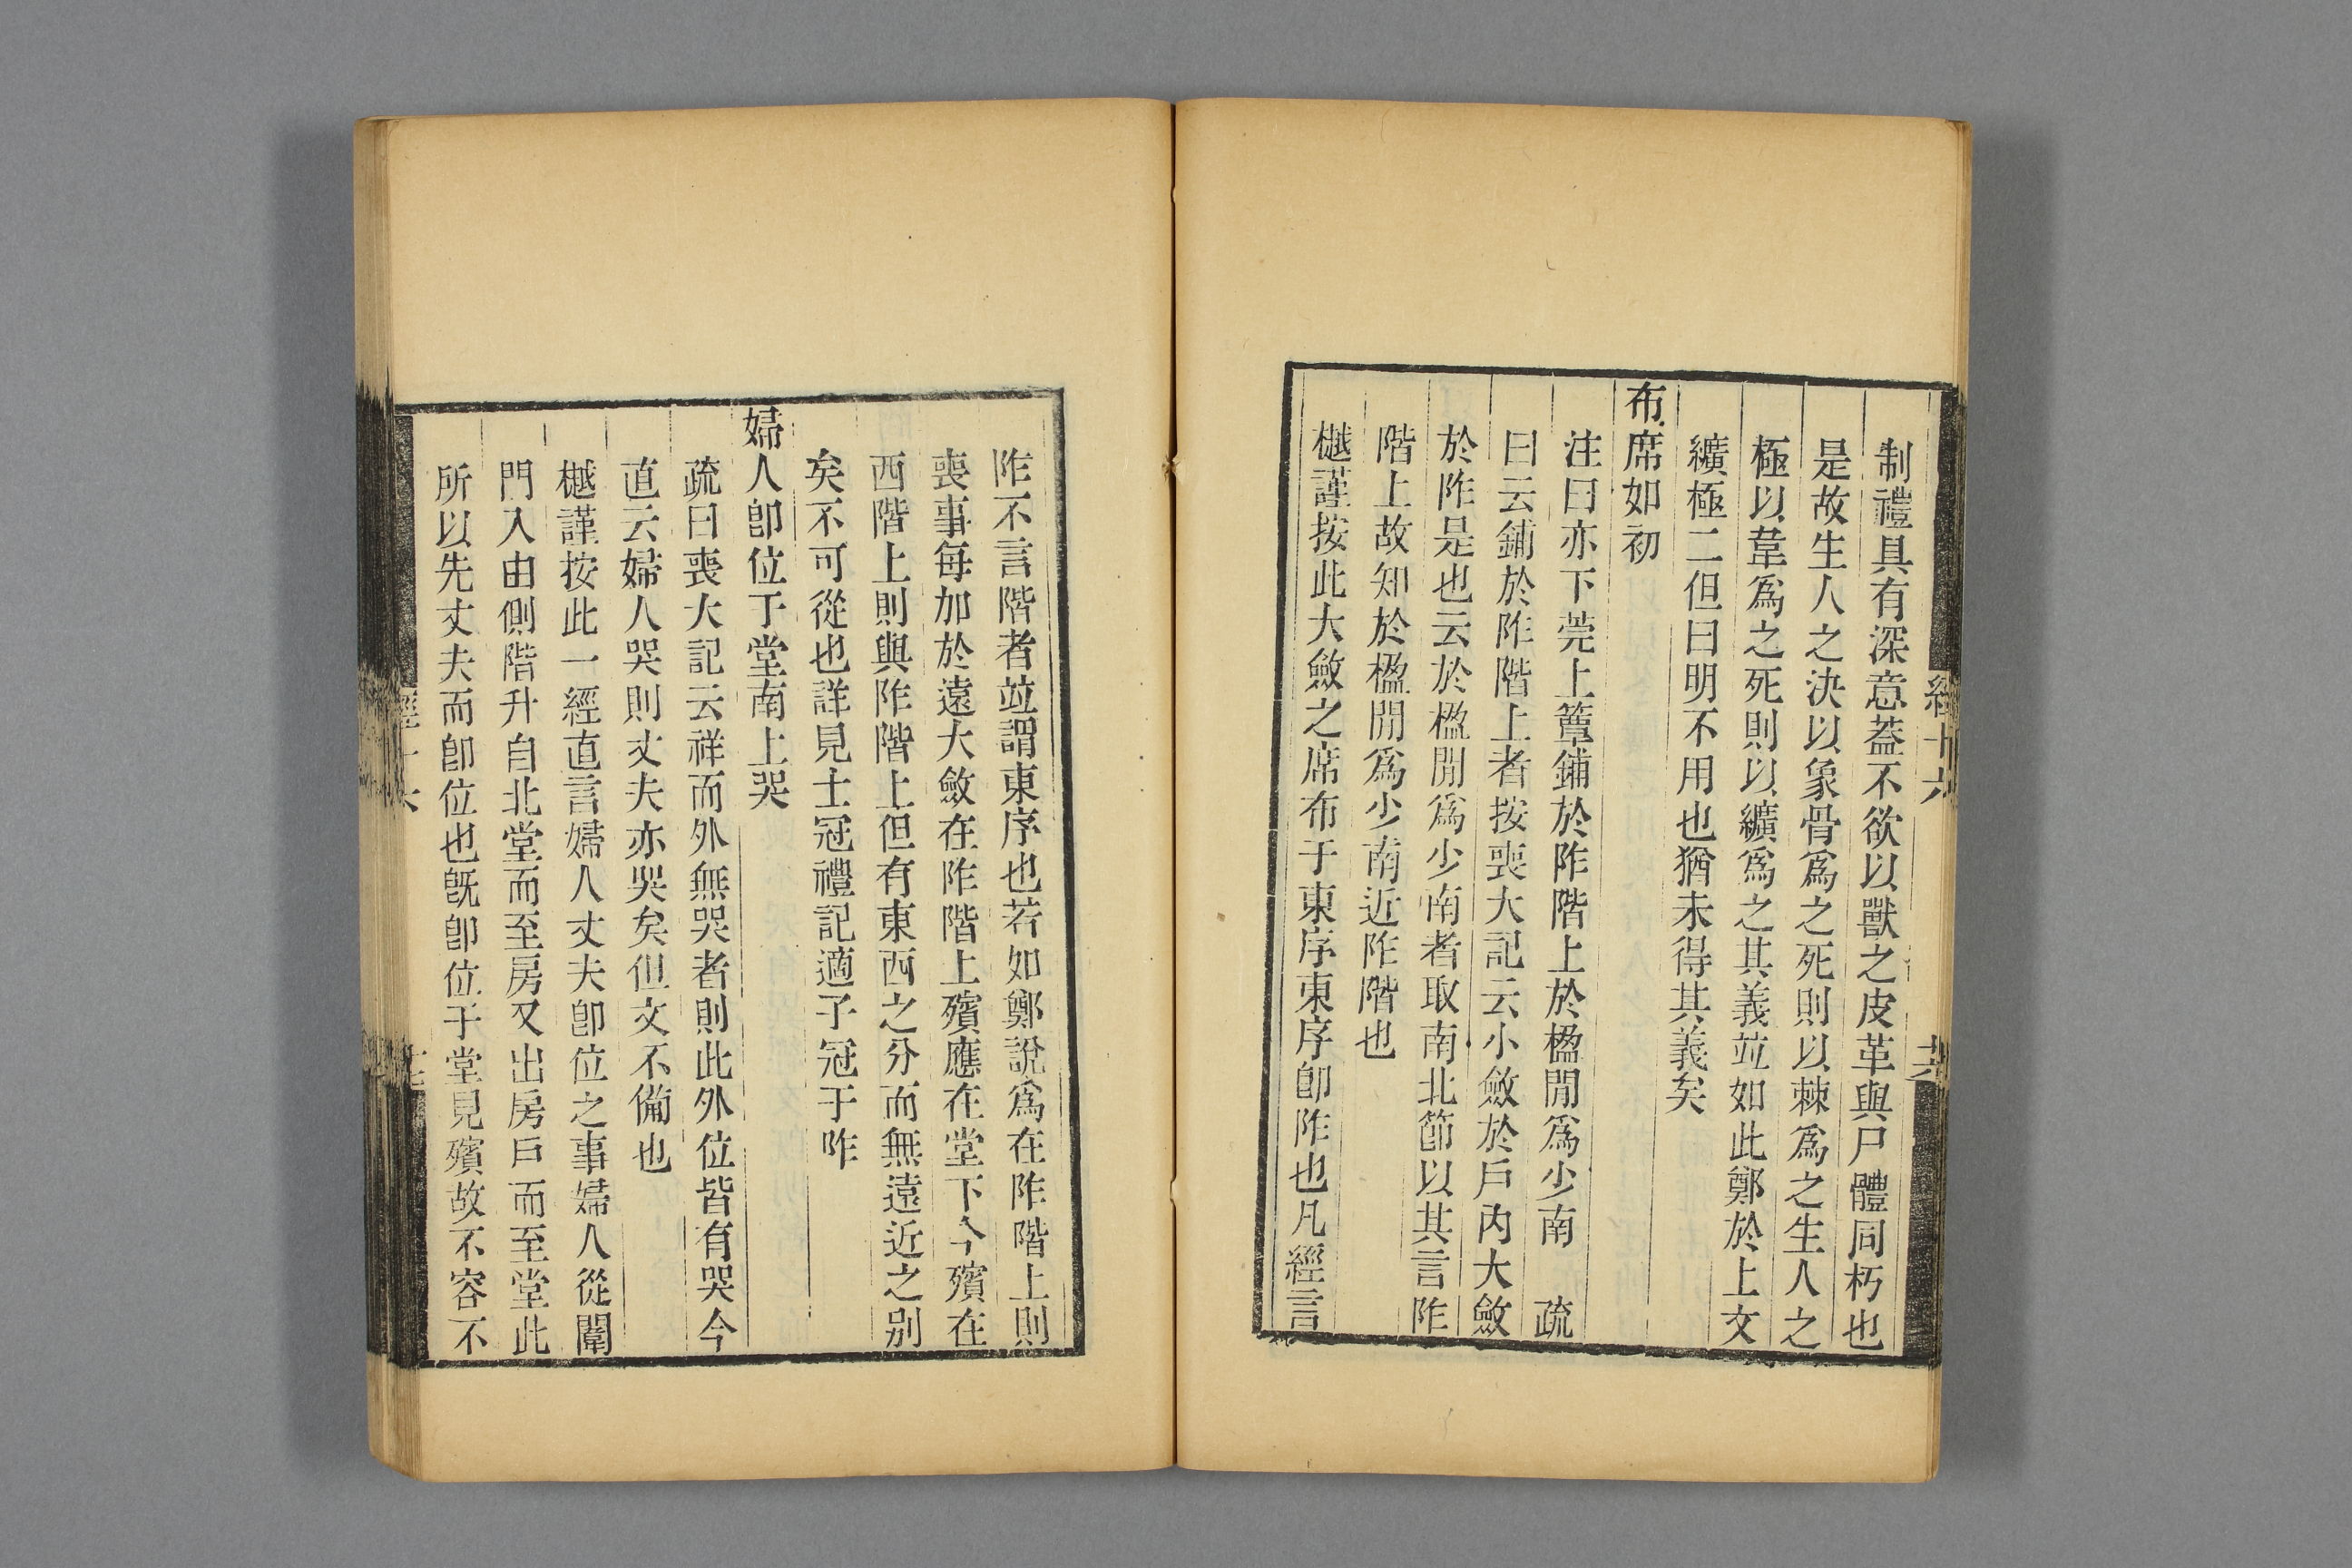 制禮具有深意蓋不欲以獸之皮革與尸體同朽也
是故生人之決以象骨爲之死則以棘爲之生人之
極以韋爲之死則以纊爲之其義並如此鄭於上文
纊極二但曰明不用也猶未得其義矣
布席如初
注曰亦下莞上簟鋪於阼階上於楹閒爲少南　疏
曰云鋪於阼階上者按喪大記云小斂於戶內大斂
於阼是也云於楹閒爲少南者取南北節以其言阼
階上故知於楹閒爲少南近阼階也
樾謹按此大斂之席布于東序東序卽阼也凡經言
阼不言階者竝謂東序也若如鄭說爲在阼階上則
喪事每加於遠大斂在阼階上殯應在堂下今殯在
西階上則與阼階上但有東西之分而無遠近之別
矣不可從也詳見士冠禮記適子冠于阼
婦人卽位于堂南上哭
疏曰喪大記云祥而外無哭者則此外位皆有哭今
直云婦人哭則丈夫亦哭矣但文不備也
樾謹按此一經直言婦人丈夫卽位之事婦人從闈
門入由側階升自北堂而至房又出房戶而至堂此
所以先丈夫而卽位也旣卽位于堂見殯故不容不
經十六